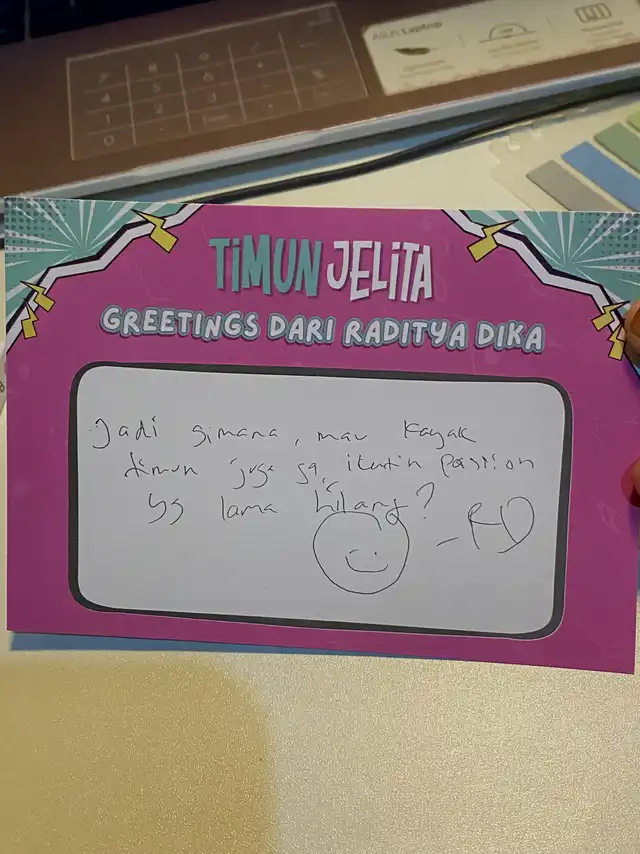 ASUS Laptop
7 8 9 /
4 5 6 *
1 2 3 -
0 . +
TiMUN JELiTA
GREETINGS DARI RADITYA DIKA
Jadi gimana, mau kayak
timun juga ga, ikutin passion
yg lama hilang?
- RD